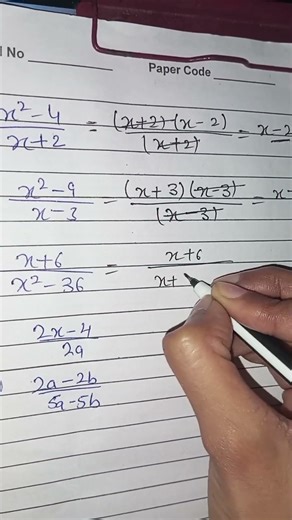 l No ________
Paper Code ________
x²-4/x+2 = (x+2)(x-2)/(x+2) = x-2
x²-9/x-3 = (x+3)(x-3)/(x-3) = x
x+6/x²-36 = x+6/(x+
2x-4/2a
2a-2b/5a-5b